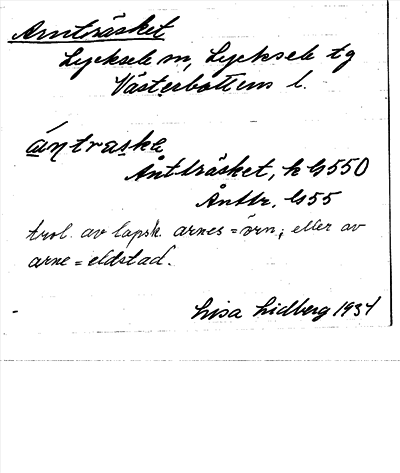 Arnträsket
Lycksele sn, Lycksele tg
Västerbottens l.
ántraska
Åntträsket, k G550
Åntbr. G55
trol. av lapsk. arnes = örn, eller av
arne = eldstad.
Lisa Lidberg 1931